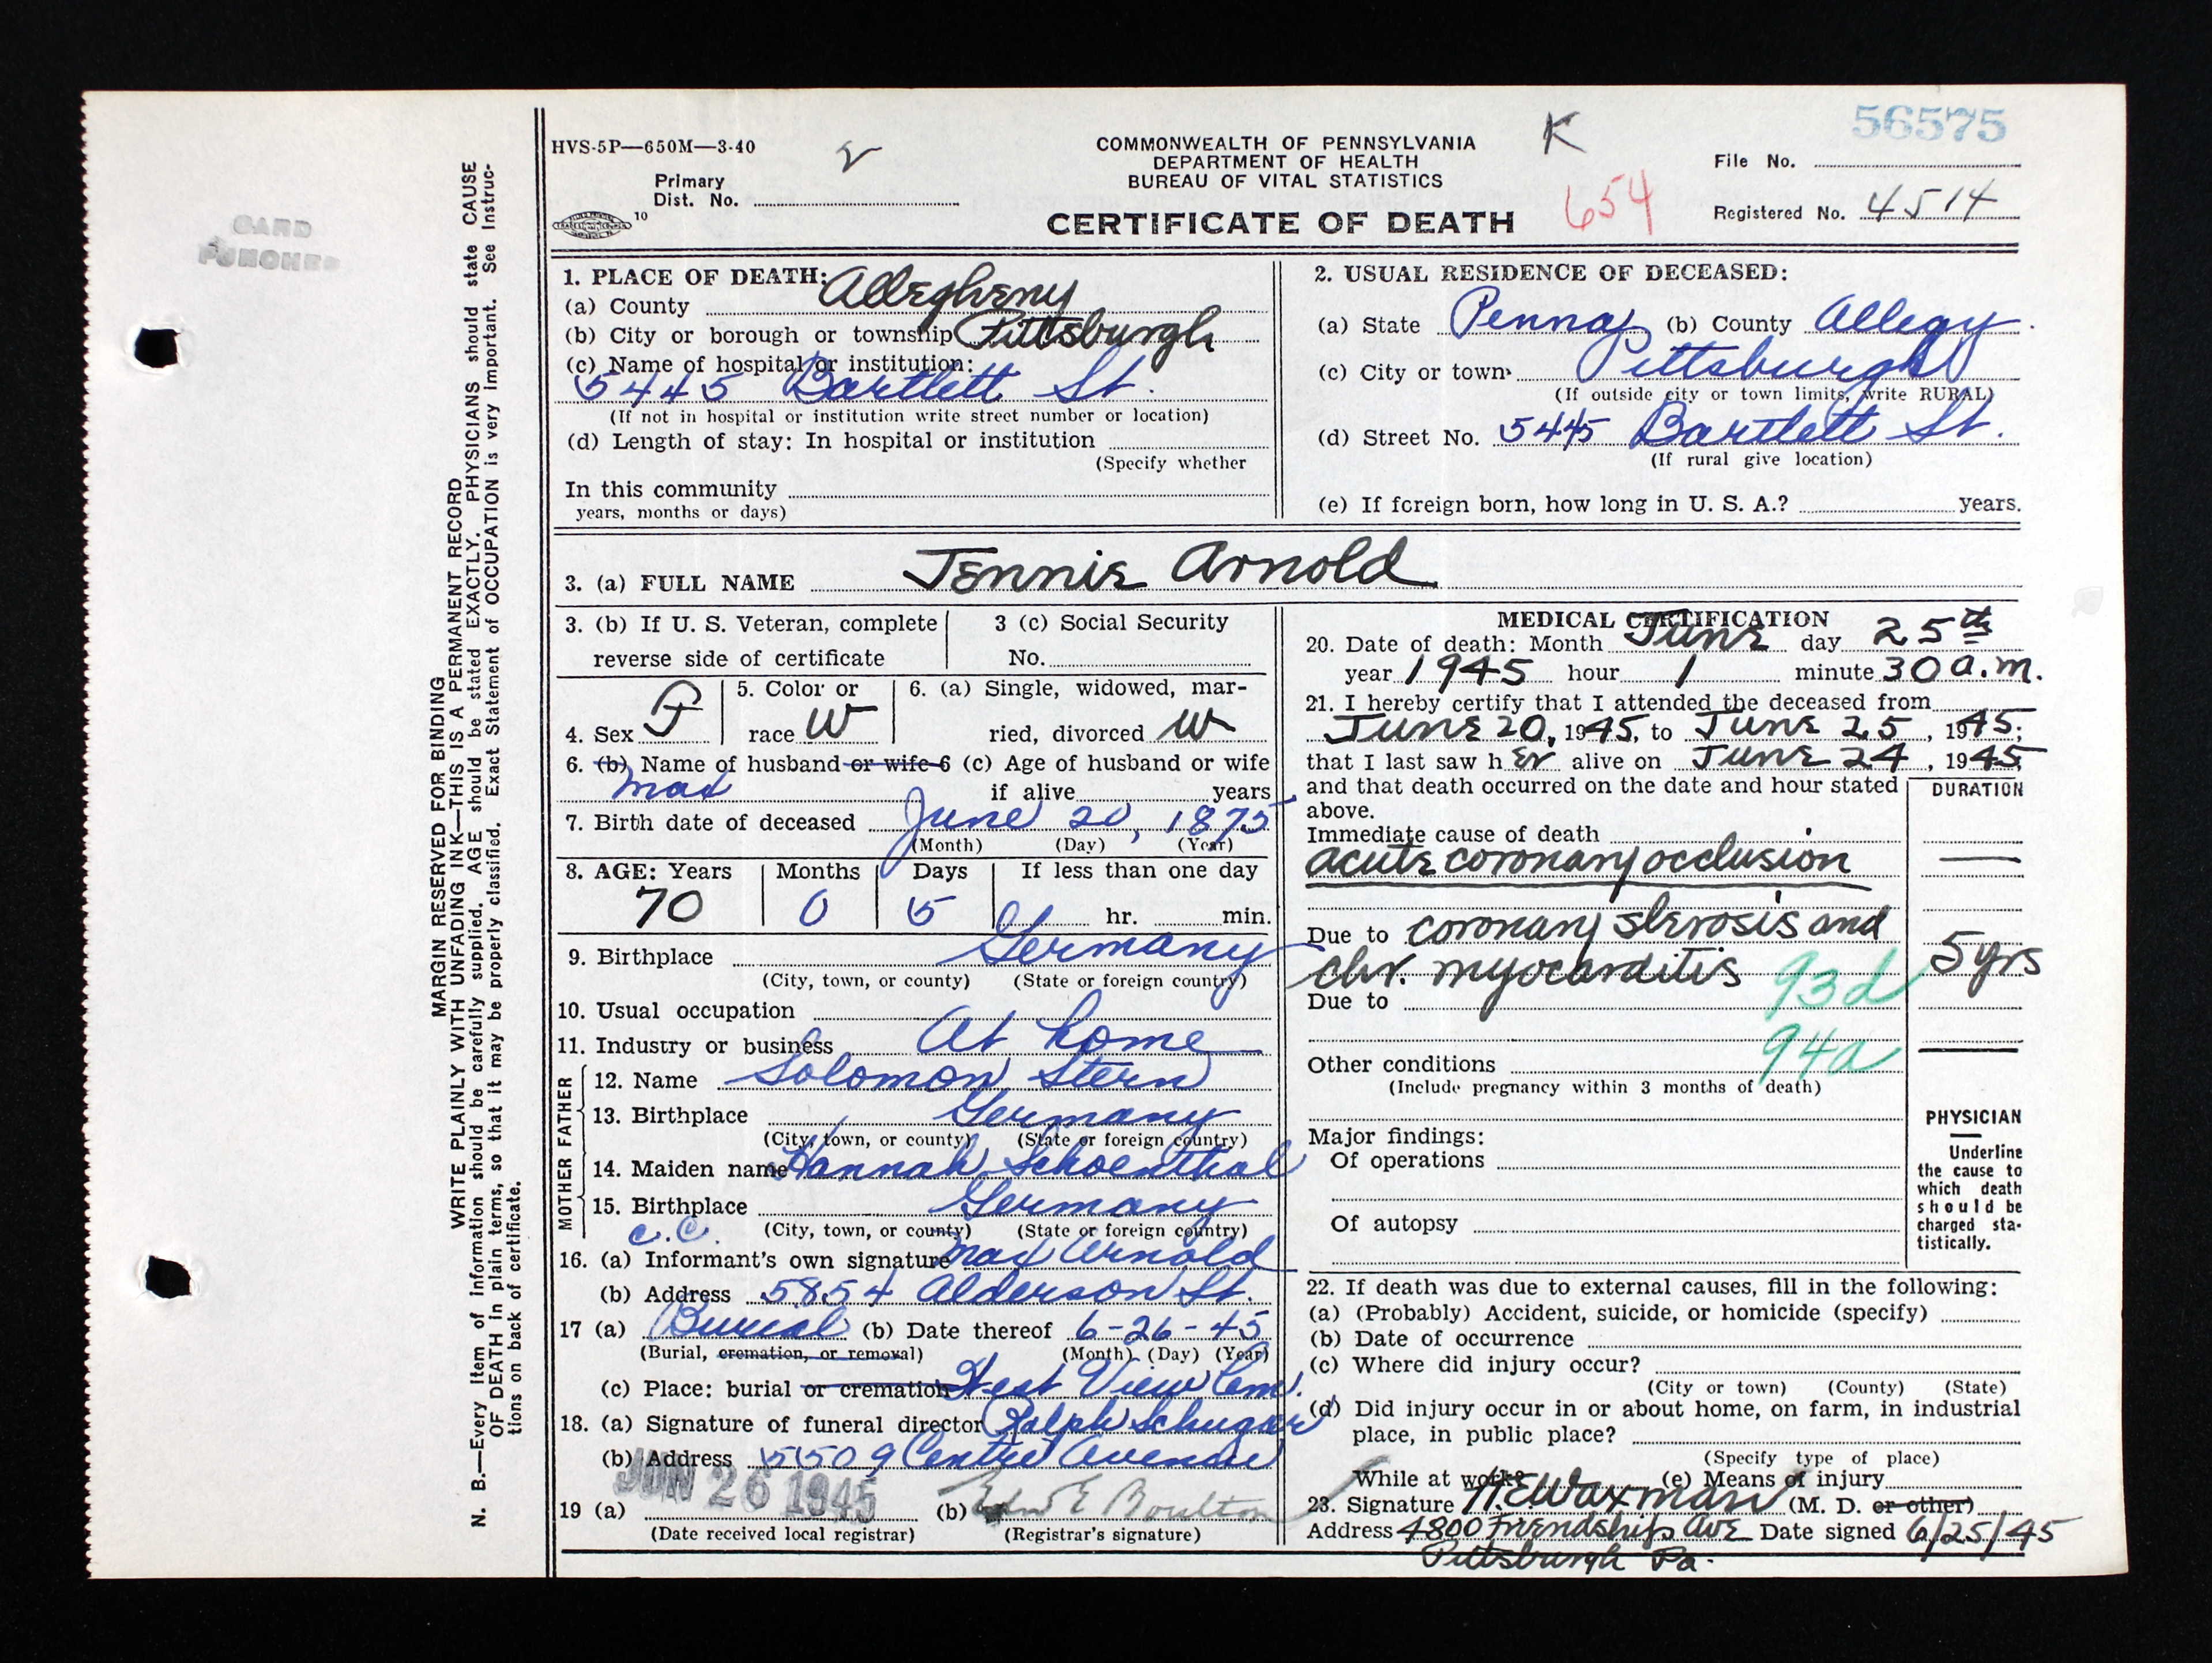 CARD
PUNCHED
MARGIN RESERVED FOR BINDING
WRITE PLAINLY WITH UNFADING INK—THIS IS A PERMANENT RECORD
N. B.—Every item of information should be carefully supplied. AGE should be stated EXACTLY. PHYSICIANS should state CAUSE
OF DEATH in plain terms, so that it may be properly classified. Exact Statement of OCCUPATION is very important. See Instruc-
tions on back of certificate.
HVS-5P—650M—3-40
Primary
Dist. No.
10
COMMONWEALTH OF PENNSYLVANIA
DEPARTMENT OF HEALTH
BUREAU OF VITAL STATISTICS
CERTIFICATE OF DEATH
K
654
56575
File No.
Registered No. 4514
1. PLACE OF DEATH:
(a) County Allegheny
(b) City or borough or township Pittsburgh
(c) Name of hospital or institution:
5445 Bartlett St.
(If not in hospital or institution write street number or location)
(d) Length of stay: In hospital or institution
(Specify whether
In this community
years, months or days)
2. USUAL RESIDENCE OF DECEASED:
(a) State Penna (b) County Allegy.
(c) City or town Pittsburgh
(If outside city or town limits, write RURAL)
(d) Street No. 5445 Bartlett St.
(If rural give location)
(e) If foreign born, how long in U. S. A.? years.
3. (a) FULL NAME Jennie Arnold
3. (b) If U. S. Veteran, complete
reverse side of certificate
3 (c) Social Security
No.
4. Sex F
5. Color or
race W
6. (a) Single, widowed, mar-
ried, divorced W
6. (b) Name of husband or wife 6 (c) Age of husband or wife
Max if alive years
7. Birth date of deceased June 20, 1875
(Month) (Day) (Year)
8. AGE: Years Months Days If less than one day
70 0 5 hr. min.
9. Birthplace Germany
(City, town, or county) (State or foreign country)
10. Usual occupation
11. Industry or business At home
FATHER
12. Name Solomon Stern
13. Birthplace Germany
(City, town, or county) (State or foreign country)
MOTHER
14. Maiden name Hannah Schoenthal
15. Birthplace Germany
c.c. (City, town, or county) (State or foreign country)
16. (a) Informant's own signature Max Arnold
(b) Address 5854 Alderson St.
17 (a) Burial (b) Date thereof 6-26-45
(Burial, cremation, or removal) (Month) (Day) (Year)
(c) Place: burial or cremation West View Cem.
18. (a) Signature of funeral director Ralph Schugar
(b) Address 5509 Centre Avenue
JUN 26 1945
19 (a) (b) Edw E Boulton
(Date received local registrar) (Registrar's signature)
MEDICAL CERTIFICATION
20. Date of death: Month June day 25th
year 1945 hour 1 minute 30 a.m.
21. I hereby certify that I attended the deceased from
June 20, 1945, to June 25, 1945;
that I last saw her alive on June 24, 1945,
and that death occurred on the date and hour stated
above.
DURATION
Immediate cause of death
acute coronary occlusion
Due to coronary slerosis and
chr. myocarditis 93d 5 yrs
Due to
94a
Other conditions
(Include pregnancy within 3 months of death)
Major findings:
Of operations
Of autopsy
PHYSICIAN
Underline
the cause to
which death
should be
charged sta-
tistically.
22. If death was due to external causes, fill in the following:
(a) (Probably) Accident, suicide, or homicide (specify)
(b) Date of occurrence
(c) Where did injury occur?
(City or town) (County) (State)
(d) Did injury occur in or about home, on farm, in industrial
place, in public place?
(Specify type of place)
While at work? (e) Means of injury
23. Signature H E Waxman (M. D. or other)
Address 4800 Friendship Ave Date signed 6/25/45
Pittsburgh Pa.